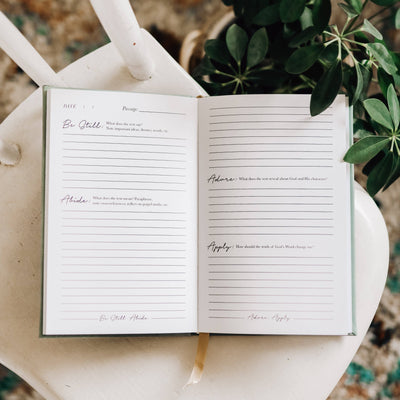 DATE / / Passage:
Be Still: What does the text say?
Note important ideas, themes, words, etc.
Abide: What does the text mean? Paraphrase,
note cross-references, reflect on gospel truths, etc.
Be Still Abide
Adore: What does the text reveal about God and His character?
Apply: How should the truth of God's Word change me?
Adore Apply